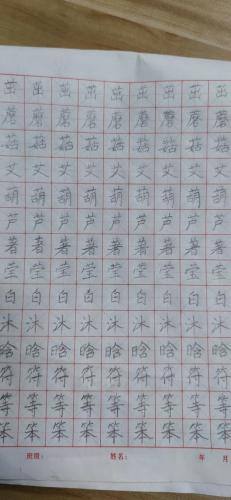 茁 茁 茁 茁 茁 茁 茁 茁
蘑 蘑 蘑 蘑 蘑 蘑 蘑 蘑
菇 菇 菇 菇 菇 菇 菇 菇
艾 艾 艾 艾 艾 艾 艾 艾
葫 葫 葫 葫 葫 葫 葫 葫
芦 芦 芦 芦 芦 芦 芦 芦
著 著 著 著 著 著 著 著
莹 莹 莹 莹 莹 莹 莹 莹
白 白 白 白 白 白 白 白
沐 沐 沐 沐 沐 沐 沐 沐
晗 晗 晗 晗 晗 晗 晗 晗
符 符 符 符 符 符 符 符
等 等 等 等 等 等 等 等
笨 笨 笨 笨 笨 笨 笨 笨
班级： 姓名： 年 月